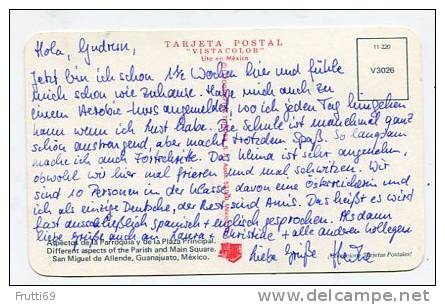 TARJETA POSTAL
"VISTACOLOR"
Lito en México
11-220
V3026
Hola, Gudrun,
Jetzt bin ich schon 1½ Wochen hier und fühle
mich schon wie zuhause. Habe mich auch zu
einem Aerobic-kurs angemeldet, wo ich jeden Tag hingehen
kann wenn ich Lust habe. Die Schule ist manchmal ganz
schön anstrengend, aber macht trotzdem Spaß. So langsam
mache ich auch Fortschritte. Das Klima ist sehr angenehm,
obwohl wir hier mal frieren und mal schwitzen. Wir
sind 10 Personen in der Klasse, davon eine Österreicherin und
ich als einzige Deutsche, der Rest sind Amis. Das heißt es wird
fast ausschließlich Spanisch + englisch gesprochen. Also dann
liebe Grüße auch an + Christine + alle anderen Kollegen
Liebe Grüße
Aspectos de la Parroquia y de la Plaza Principal.
Different aspects of the Parish and Main Square.
San Miguel de Allende, Guanajuato, México.
Tarjetas Postales!
Frutti69
delcampe.net